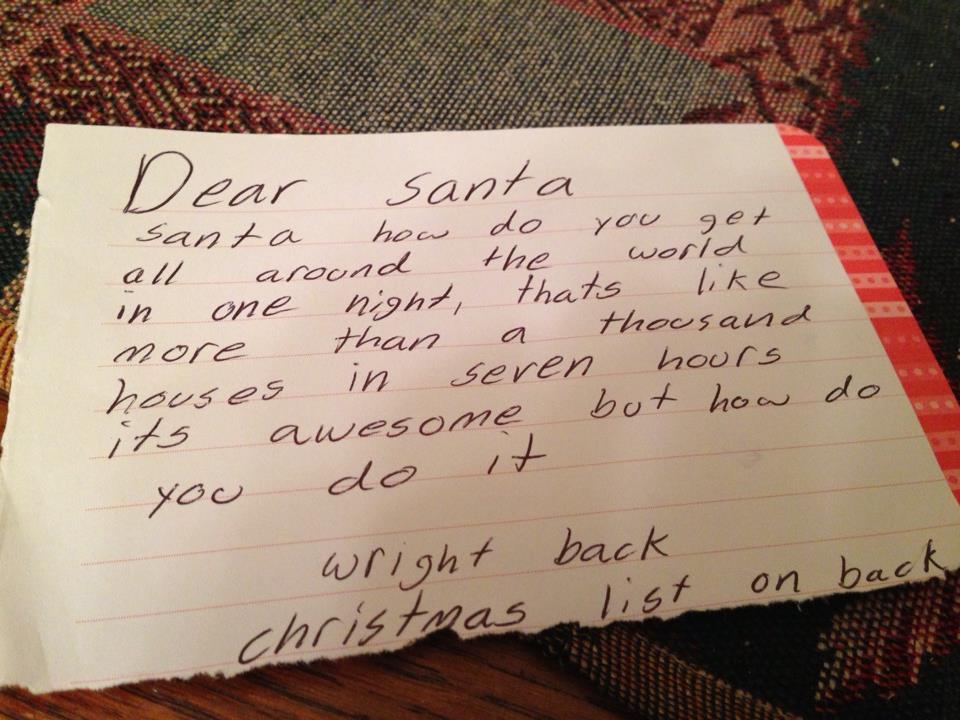 Dear Santa
Santa how do you get
all around the world
in one night, thats like
more than a thousand
houses in seven hours
its awesome but how do
you do it
wright back
christmas list on back